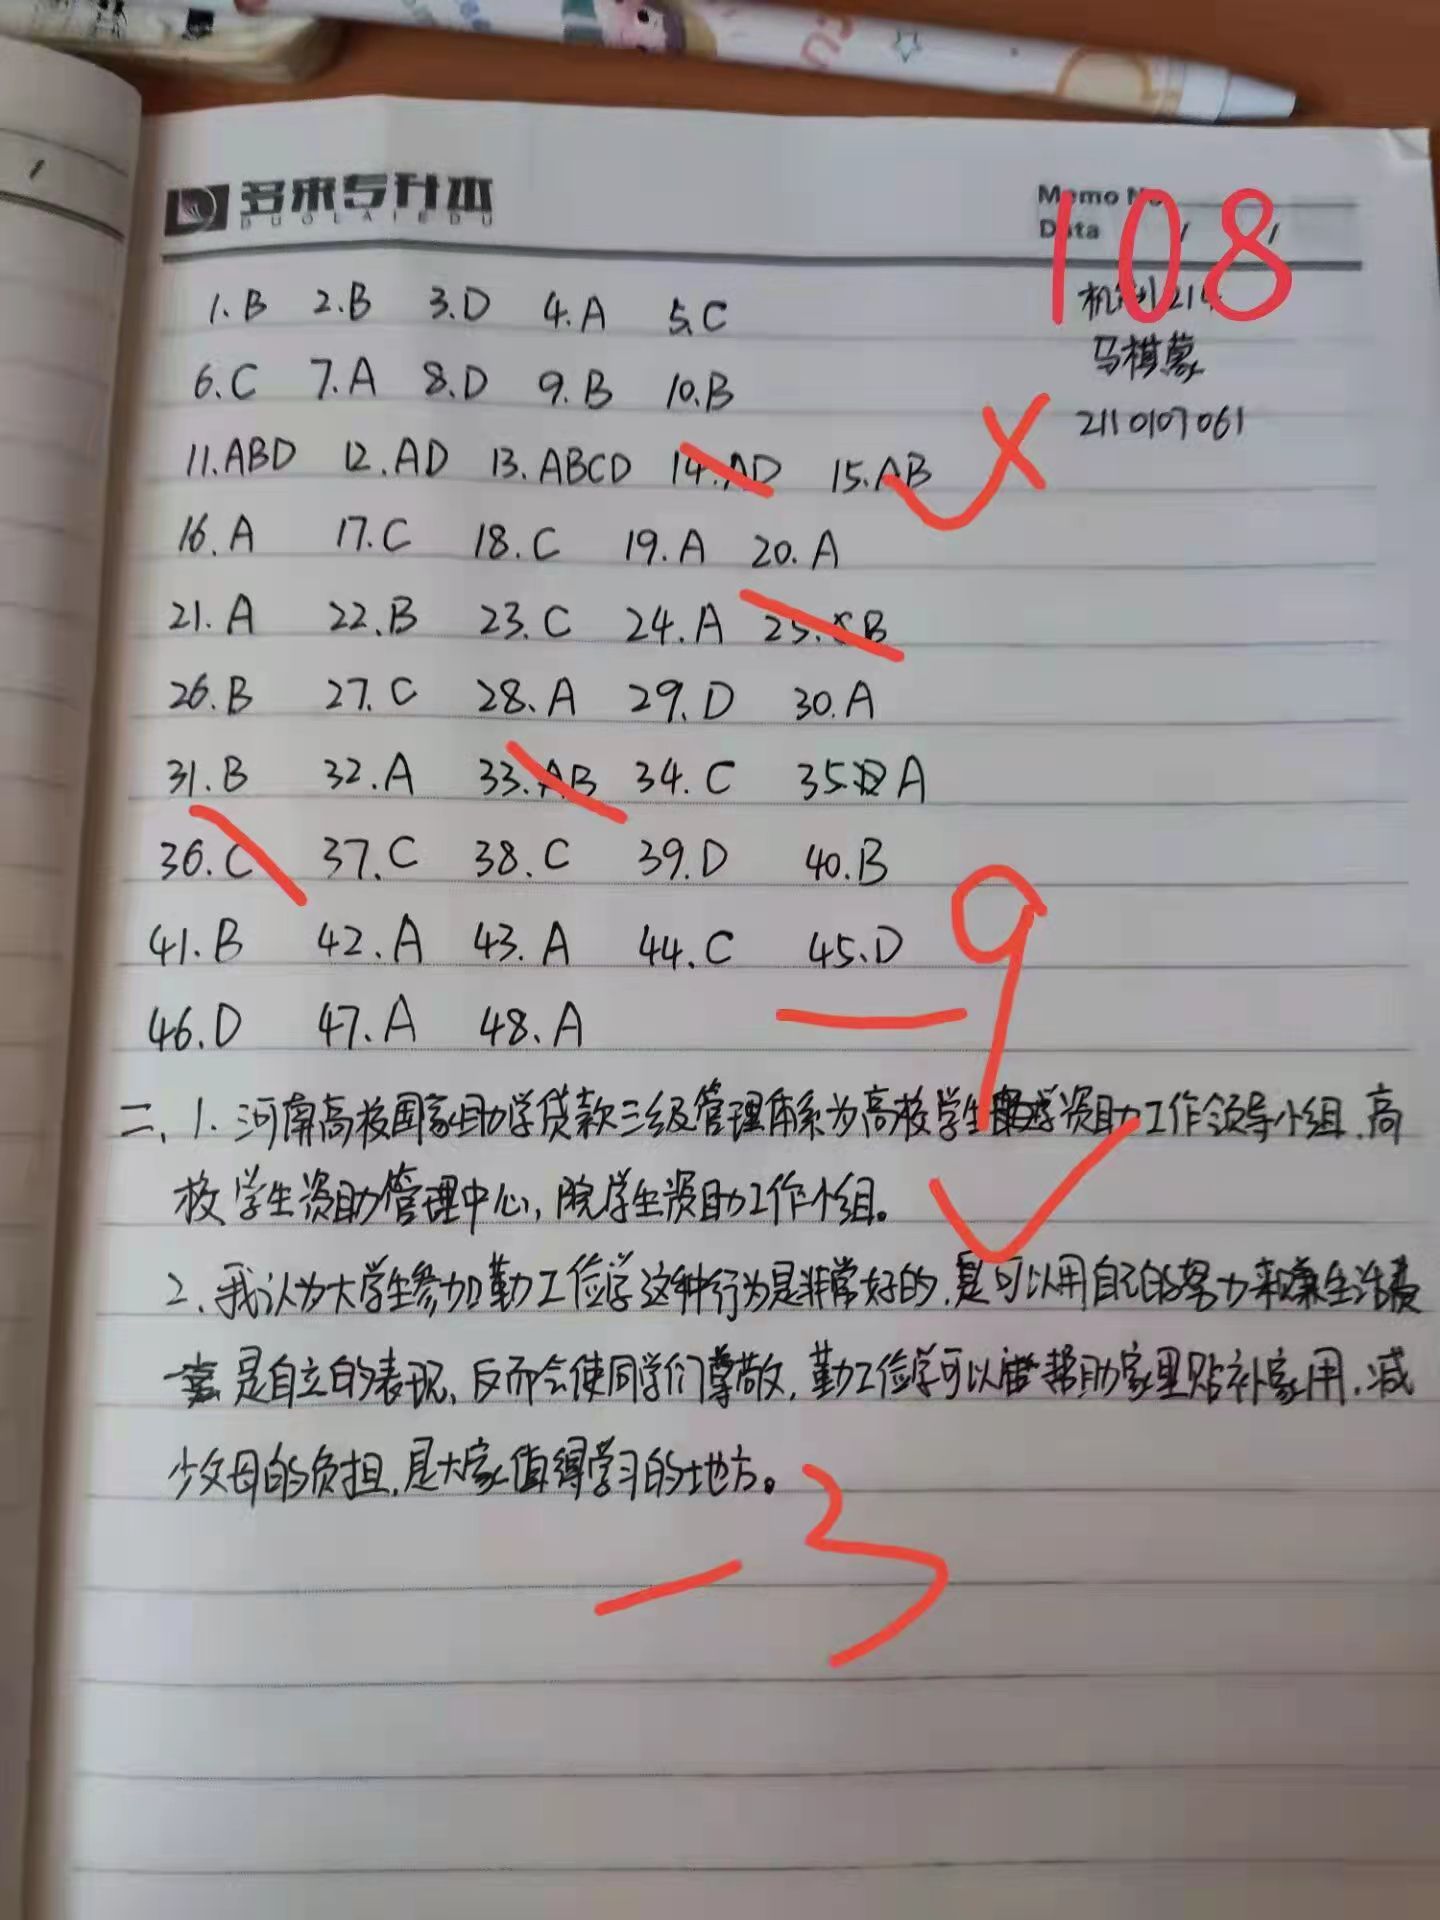 多来专升本
DUOLAIEDU
Memo No
Data / /
108
机制214
马棋蒙
2110107061
1.B 2.B 3.D 4.A 5.C
6.C 7.A 8.D 9.B 10.B
11.ABD 12.AD 13.ABCD 14.AD 15.AB
16.A 17.C 18.C 19.A 20.A
21.A 22.B 23.C 24.A 25.B
26.B 27.C 28.A 29.D 30.A
31.B 32.A 33.AB 34.C 35.A
36.C 37.C 38.C 39.D 40.B
41.B 42.A 43.A 44.C 45.D
46.D 47.A 48.A
-9
二、1.河南高校国家助学贷款三级管理体系为高校学生资助工作领导小组、高
校学生资助管理中心,院学生资助工作小组。
2、我认为大学生参加勤工俭学这种行为是非常好的,是可以用自己的努力来赚生活费
是自立的表现,反而会使同学们尊敬,勤工俭学可以帮助家里贴补家用,减
少父母的负担,是大家值得学习的地方。
-3